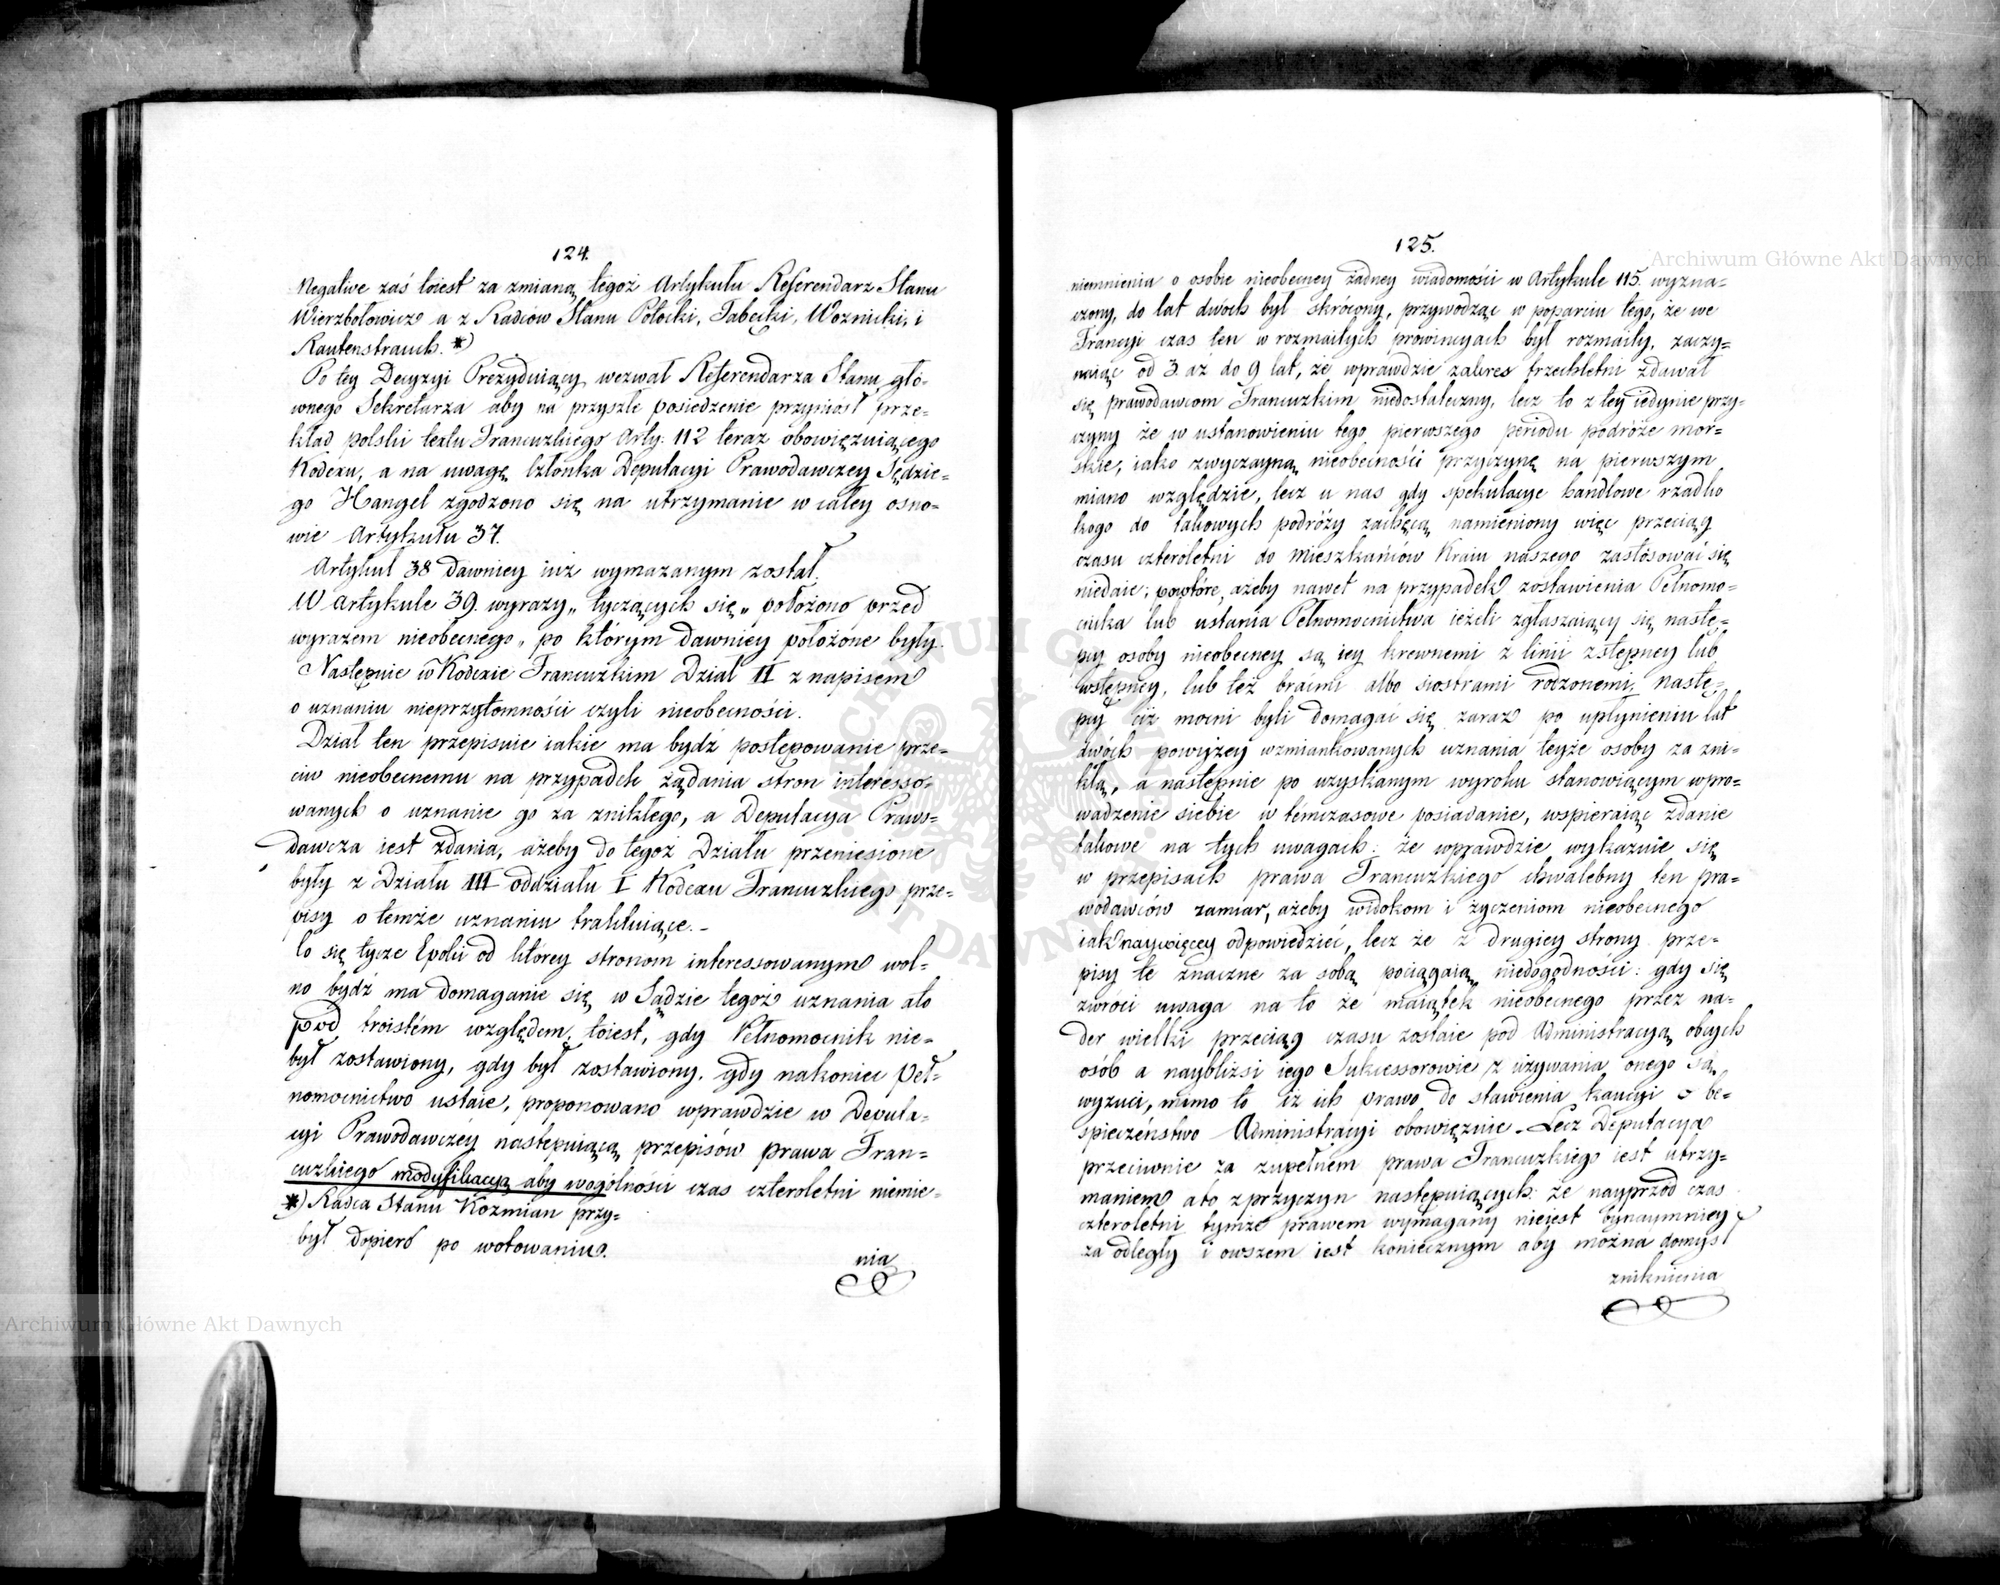 124.
Negative zaś toiest za zmianą tegoż Artykułu Referendarz Stanu
Wierzbołowicz a z Radców Stanu Potocki, Tabęcki, Woznicki, i
Rautenstrauch. *)
Po tey Decyzyi Prezyduiący wezwał Referendarza Stanu głó-
wnego Sekretarza aby na przyszłe posiedzenie przyniósł prze-
kład polski textu Francuzkiego Arty: 112 teraz obowięzuiącego
Kodexu, a na uwagę Członka Deputacyi Prawodawczey Sędzie-
go Hangel zgodzono się na utrzymanie w całey osno-
wie Artykułu 37.
Artykuł 38 dawniey iuż wymazanym został.
W artykule 39 wyrazy „ tyczących się „ położono przed
wyrazem nieobecnego „ po którym dawniey położone były.
Następnie w Kodexie Francuzkim Dział II z napisem
o uznaniu nieprzytomności czyli nieobecności.
Dział ten przepisuie iakie ma bydź postępowanie prze-
ciw nieobecnemu na przypadek żądania stron interesso-
wanych o uznanie go za znikłego, a Deputacya Prawo-
dawcza iest zdania, ażeby do tegoż Działu przeniesione
były z Działu III oddziału I Kodexu Francuzkiego prze-
pisy o temże uznaniu traktuiące. -
Co się tycze Epoki od którey stronom interessowanym wol-
no bydź ma domaganie się w Sądzie tegoż uznania ato
pod troistém względem; toiest, gdy Pełnomocnik nie-
był zostawiony, gdy był zostawiony, gdy nakoniec peł-
nomocnictwo ustaie, proponowano wprawdzie w Deputa-
cyi Prawodawczéy następuiącą przepisów prawa Fran-
cuzkiego modyfikacyą aby wogólności czas czteroletni niemie-
*) Radca Stanu Kozmian przy-
był dopiero po wotowaniu.
nia
125.
niemnienia o osobie nieobecney żadney wiadomości w Artykule 115. wyzna-
czony, do lat dwóch był skrócony, przywodząc w poparciu tego, że we
Francyi czas ten w rozmaitych prowincyach był rozmaity, zaczy-
naiąc od 3 aż do 9 lat, że wprawdzie zakres trzechletni zdawał
się prawodawcom Francuzkim niedostateczny, lecz to z tey iedynie przy-
czyny że w ustanowieniu tego pierwszego periodu podróże mor-
skie, iako zwyczayną nieobecności przyczynę na pierwszym
miano względzie, lecz u nas gdy spekulacye handlowe rzadko
kogo do takowych podróży zachęcą namieniony więc przeciąg
czasu czteroletni do mieszkańców Kraiu naszego zastósować się
niedaie; powtóre, ażeby nawet na przypadek zostawienia Pełnomo-
cnika lub ustania Pełnomocnictwa ieżeli zgłaszaiący się nastę-
pcy osoby nieobecney są iey krewnemi z linii zstępney lub
wstępney, lub też braćmi albo siostrami rodzonemi, nastę-
pcy ciż mocni byli domagać się zaraz po upłynieniu lat
dwóch powyżey wzmiankowanych uznania teyże osoby za zni-
kłą, a następnie po uzyskanym wyroku stanowiącym wpro-
wadzenie siebie w témczasowe posiadanie, wspieraiąc zdanie
takowe na tych uwagach: że wprawdzie wykazuie się
w przepisach prawa Francuzkiego chwalebny ten pra-
wodawców zamiar, ażeby widokom i życzeniom nieobecnego
iak naywięcey odpowiedzieć, lecz że z drugiey strony prze-
pisy te znaczne za sobą pociągaią niedogodności: gdy się
zwróci uwaga na to że maiątek nieobecnego przez na-
der wielki przeciąg czasu zostaie pod Administracyą obcych
osób a naybliżsi iego Sukcessorowie z używania onego są
wyzuci, mimo to iż ich prawo do stawienia kaucyi o be-
spieczeństwo Administracyi obowięzuie. Lecz Deputacya
przeciwnie za zupełnem prawa Francuzkiego iest utrzy-
maniem ato zprzyczyn następuiących: że nayprzod czas
czteroletni tymże prawem wymagany nieiest bynaymniey
za odległy i owszem iest koniecznym aby można domysł
zniknienia
Archiwum Główne Akt Dawnych
Archiwum Główne Akt Dawnych